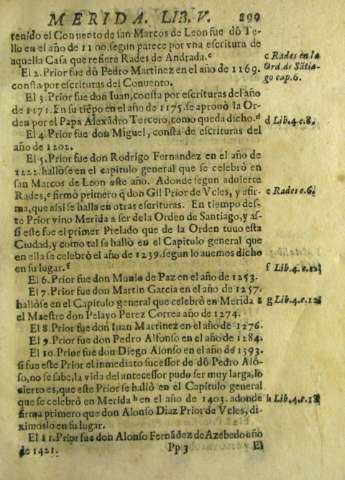 MERIDA. LIB. V. 299
tenido el Conuento de san Marcos de Leon fue dō Te-
llo en el año de 1100. segun parece por vna escritura de
aquella Casa que refiere Rades de Andrada.c
c Rades en la
Ord. de Sātia-
go cap. 6.
El 2. Prior fue dō Pedro Martinez en el año de 1169.
consta por escrituras del Conuento.
El 3. Prior fue don Iuan, consta por escrituras del año
de 1171. En su tiēpo en el año de 1175. se aprouò la Or-
den por el Papa Alexādro Tercero, como queda dicho.d
d Lib. 4. c. 8.
El 4. Prior fue don Miguel, consta de escrituras del
año de 1202.
El 5. Prior fue don Rodrigo Fernandez en el año de
1222. hallòse en el capitulo general que se celebrò en
san Marcos de Leon este año. Adonde segun aduierte
Rades,e firmò primero q̄ don Gil Prior de Vcles, y afir-
ma, que assi se halla en otras escrituras. En tiempo des-
e Rades c. 6.
te Prior vino Merida a ser de la Orden de Santiago, y as-
si este fue el primer Prelado que de la Orden tuuo esta
Ciudad, y como tal se hallò en el Capitulo general que
en ella se celebrò el año de 1239. segun lo auemos dicho
en su lugar.f
f Lib. 4. c. 12
El 6. Prior fue don Munio de Paz en el año de 1253.
El 7. Prior fue don Martin Garcia en el año de 1257.
hallòse en el Capitulo general que celebrò en Merida g
g Lib. 4. c. 12
el Maestre don Pelayo Perez Correa año de 1274.
El 8. Prior fue don Iuan Martinez en el año de 1276.
El 9. Prior fue don Pedro Alfonso en el año de 1284.
El 10. Prior fue don Diego Alonso en el año de 1393.
si fue este Prior el inmediato sucessor de dō Pedro Alō-
so, no se sabe, la vida del antecessor pudo ser muy larga, lo
cierto es, que este Prior se hallò en el Capitulo general
que se celebrò en Merida h en el año de 1403. adonde
h Lib. 4. c. 18
firma primero que don Alonso Diaz Prior de Vcles, di-
ximoslo en su lugar.
El 11. Prior fue don Alonso Fernādez de Azebedo año
de 1421. Pp 3 El